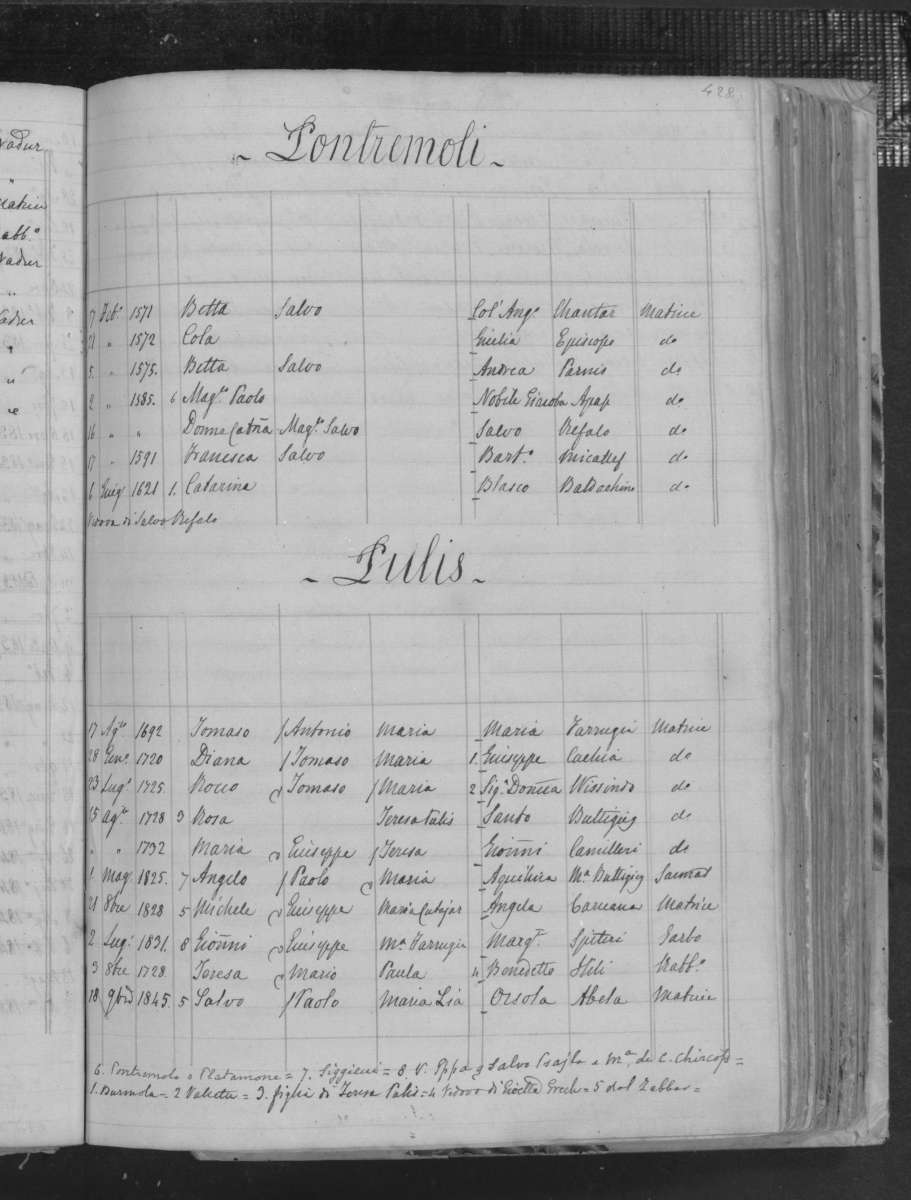 Nadur
"
Matrice
Rabb.o
Nadur
"
Nadur
"
"
428
- Pontremoli -
7 Feb.o 1571 Betta Salvo Col' Ang.o Chantar Matrice
21 " 1572 Cola Giulia Episcopo do
5 " 1575. Betta Salvo Andrea Parnis do
2 " 1585. 6 Mag.co Paolo Nobile Giacoba Azzap do
16 " " Donna Catña Mag.co Salvo Salvo Refalo do
17 " 1591 Francesca Salvo Bart.o Micallef do
6 Giug 1621 1. Catarina Blasco Baldachino do
Vedova di Salvo Refalo
- Pulis -
17 Ag.to 1692 Tomaso f Antonio Maria Maria Farrugia Matrice
28 Gen.o 1720 Diana f Tomaso Maria 1. Giuseppe Cachia do
23 Lug.o 1725. Rocco Tomaso f Maria 2 Sig.a Doñca Vissindo do
15 ag.to 1728 3 Rosa Teresa Pulis Santo Buttigieg do
" " 1732 Maria Giuseppe f Teresa Gioñni Camilleri do
1. Mag. 1825. 7 Angelo f Paolo Maria Aquilina M.a Buttigieg Sannat
21 8bre 1828 5 Michele Giuseppe Maria Cutajar Angela Caruana Matrice
2 Lug. 1831. 8 Gioñni Giuseppe M.a Farrugia Marg.ta Spiteri Garbo
3 8bre 1728 Teresa Mario Paula 4 Benedetto Hili Rabb.o
18 9bre 1845. 5 Salvo f Paolo Maria Lia Orsola Abela Matrice
6. Pontremolo o Platamone = 7. Siggieui = 8 V. Gppa di Salvo Psajla e M.a de C. Chircop =
1. Burmola = 2 Valletta = 3. figlia di Teresa Pulis = 4 Vedovo di Giovñlla Grech = 5 dal Zabbar =